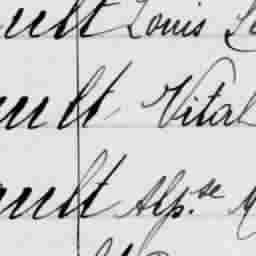 ault Louis
ault Vital
ault Alp.se